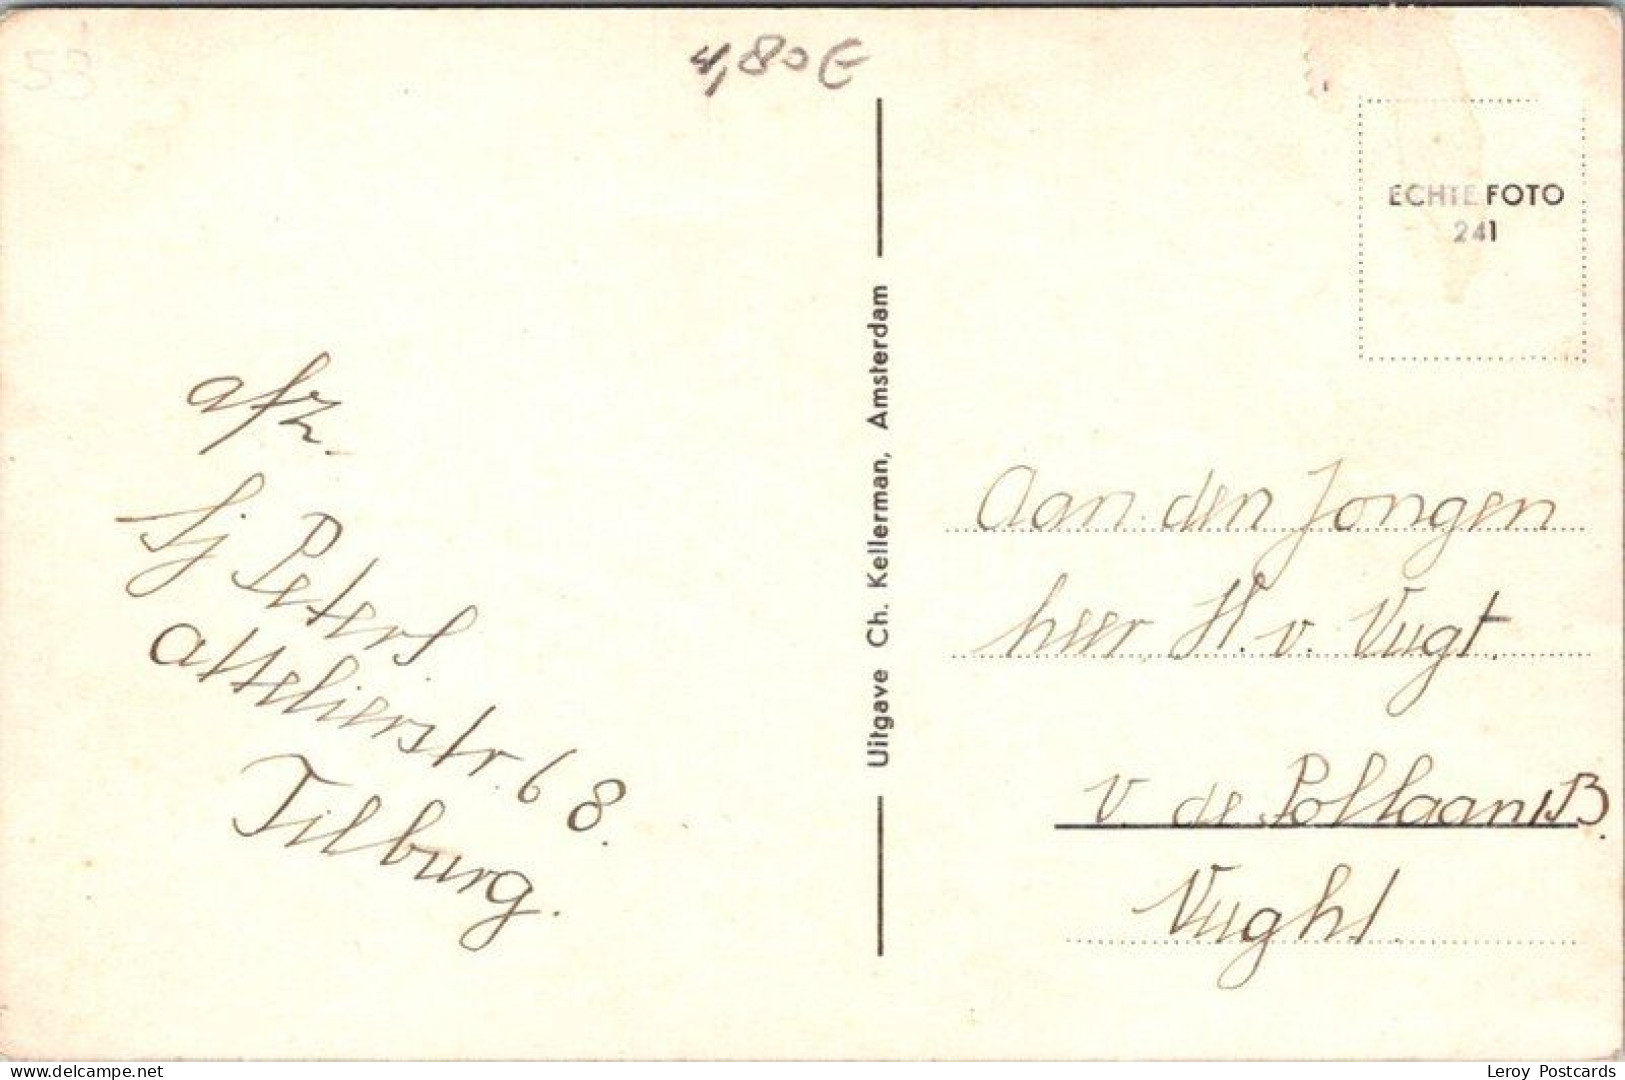 53
4,80 €
ECHTE FOTO
241
afz.
Sj Peters
Attelierstr. 68.
Tilburg.
Uitgave Ch. Kellerman, Amsterdam
Aan den Jongen
heer H. v. Vugt.
v. de Pollaan 13.
Vught.
delcampe.net
Leroy Postcards